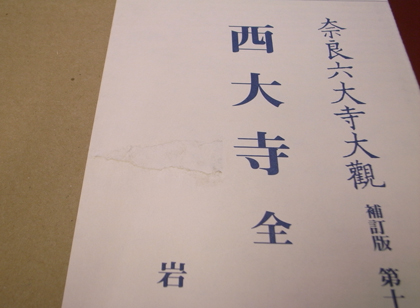 奈良六大寺大觀
補訂版 第十
西大寺 全
岩